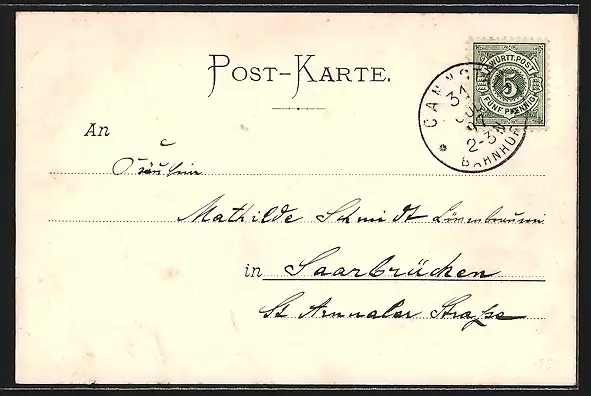 POST-KARTE.
K. WÜRTT. POST
5
FÜNF PFENNIG
CANNS
31
JUL
97
2-3
BAHNHOF
An
Fräulein
Mathilde Schmidt
in Saarbrücken
St Arnualer Straße